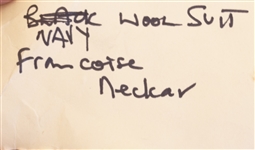 BLACK WOOL SUIT
NAVY
Francoise
Neckar